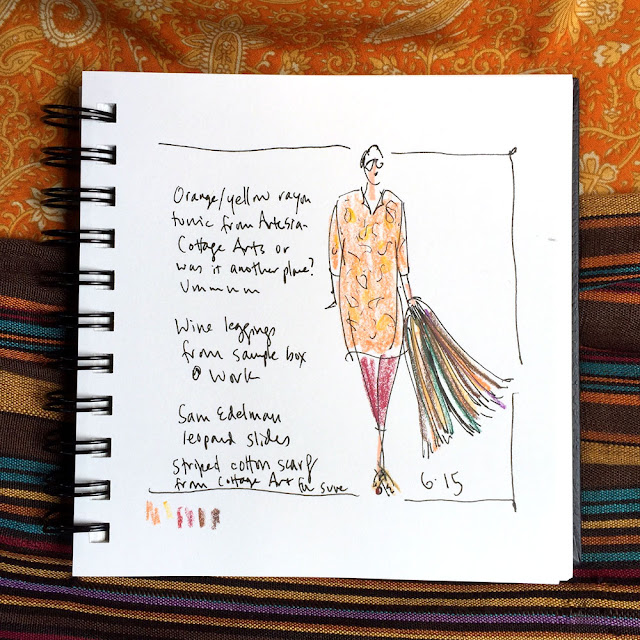 Orange/yellow rayon
tunic from Artesia-
Cottage Arts or
was it another place?
Ummmm
Wine leggings
from sample box
@ work
Sam Edelman
leopard slides
striped cotton scarf
from Cottage Art for sure
6.15